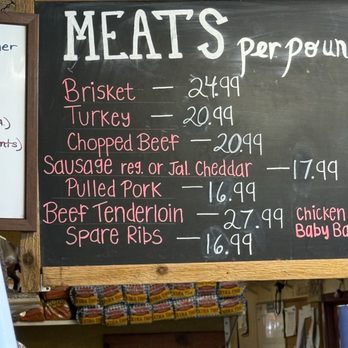 MEATS per poun
Brisket — 24.99
Turkey — 20.99
Chopped Beef — 20.99
Sausage reg. or Jal. Cheddar — 17.99
Pulled Pork — 16.99
Beef Tenderloin — 27.99 chicken
Spare Ribs — 16.99 Baby Ba